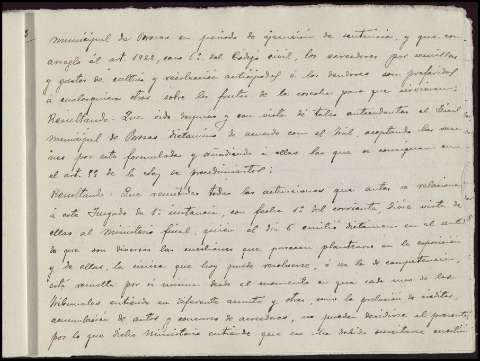 municipal de Porras en período de ejecución de sentencia, y que con
arreglo al art. 1922, caso 6º del Código civil, los acreedores por semillas
y gastos de cultivo y recolección anticipados á los deudores son preferidos
á cualesquiera otros sobre los frutos de la cosecha para que sirvieron;
Resultando: Que oido despues y con vista de tales antecedentes el Fiscal
municipal de Porras dictaminó de acuerdo con el aceptando las
por este formuladas y añadiendo á ellas las que se consignan en
el art. de la Ley de procedimientos;
Resultando: Que remitidas todas las actuaciones que antes se relacionan
á este Juzgado de 1ª instancia, con fecha 1º del corriente, dióse vista de
ellas al Ministerio fiscal, quien al día 6 emitió dictamen en el sentido
de que son diversas las cuestiones que parecen plantearse en la exposición
y de ellas, la única que hoy puede resolverse, ó sea la de competencia,
está resuelta por sí misma desde el momento en que cada uno de los
tribunales entiende en diferente asunto y otras, como la prelación de créditos,
acumulación de autos y concurso de acreedores, no pueden decidirse al presente,
por lo que dicho Ministerio entiende que no ha debido suscitarse cuestión